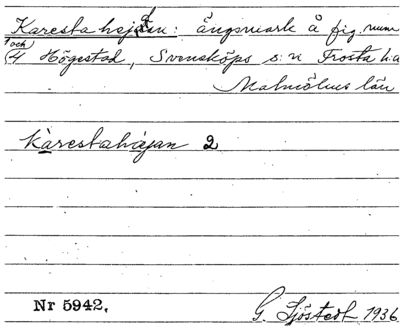 Karesta hejdan: ängsmark å fig. num
och
4 Högestad, Svensköps s:n Frosta h:a
Malmöhus län
Karestahajan 2
Nr 5942.
G. Sjöstedt 1936